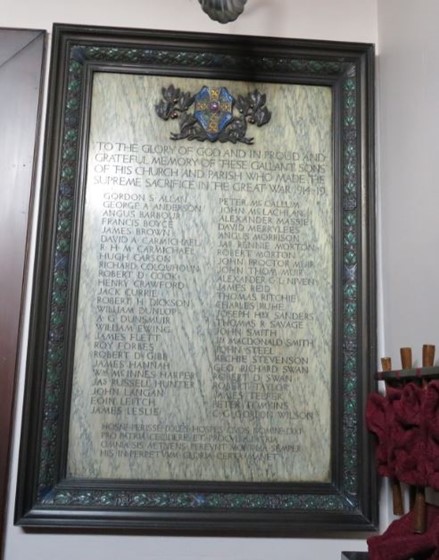 TO THE GLORY OF GOD AND IN PROUD AND
GRATEFUL MEMORY OF THESE GALLANT SONS
OF THIS CHURCH AND PARISH WHO MADE THE
SUPREME SACRIFICE IN THE GREAT WAR 1914-19
GORDON S ALLAN
GEORGE A ANDERSON
ANGUS BARBOUR
FRANCIS BOYCE
JAMES BROWN
DAVID A CARMICHAEL
R H M CARMICHAEL
HUGH CARSON
RICHARD COLQUHOUN
ROBERT D COOK
HENRY CRAWFORD
JACK CURRIE
ROBERT H DICKSON
WILLIAM DUNLOP
A G DUNSMUIR
WILLIAM EWING
JAMES FLETT
ROY FORBES
ROBERT D GIBB
JAMES HANNAH
WM MCINNES HARPER
JAS RUSSELL HUNTER
JOHN LANGAN
EOIN LEITCH
JAMES LESLIE
PETER MCCALLUM
JOHN MCLACHLAN
ALEXANDER MASSIE
DAVID MERRYLEES
ANGUS MORRISON
JAS RENNIE MORTON
ROBERT MORTON
JOHN PROCTOR MUIR
JOHN THOM MUIR
ALEXANDER G NIVEN
JAMES REID
THOMAS RITCHIE
CHARLES
JOSEPH SANDERS
THOMAS R SAVAGE
JOHN SMITH
MACDONALD SMITH
JOHN STEEL
ARCHIE STEVENSON
GEO RICHARD SWAN
ROBERT D SWAN
ROBERT TAYLOR
JAMES TELFER
PETER
C GORDON WILSON
PRO PATRIA
GLORIA